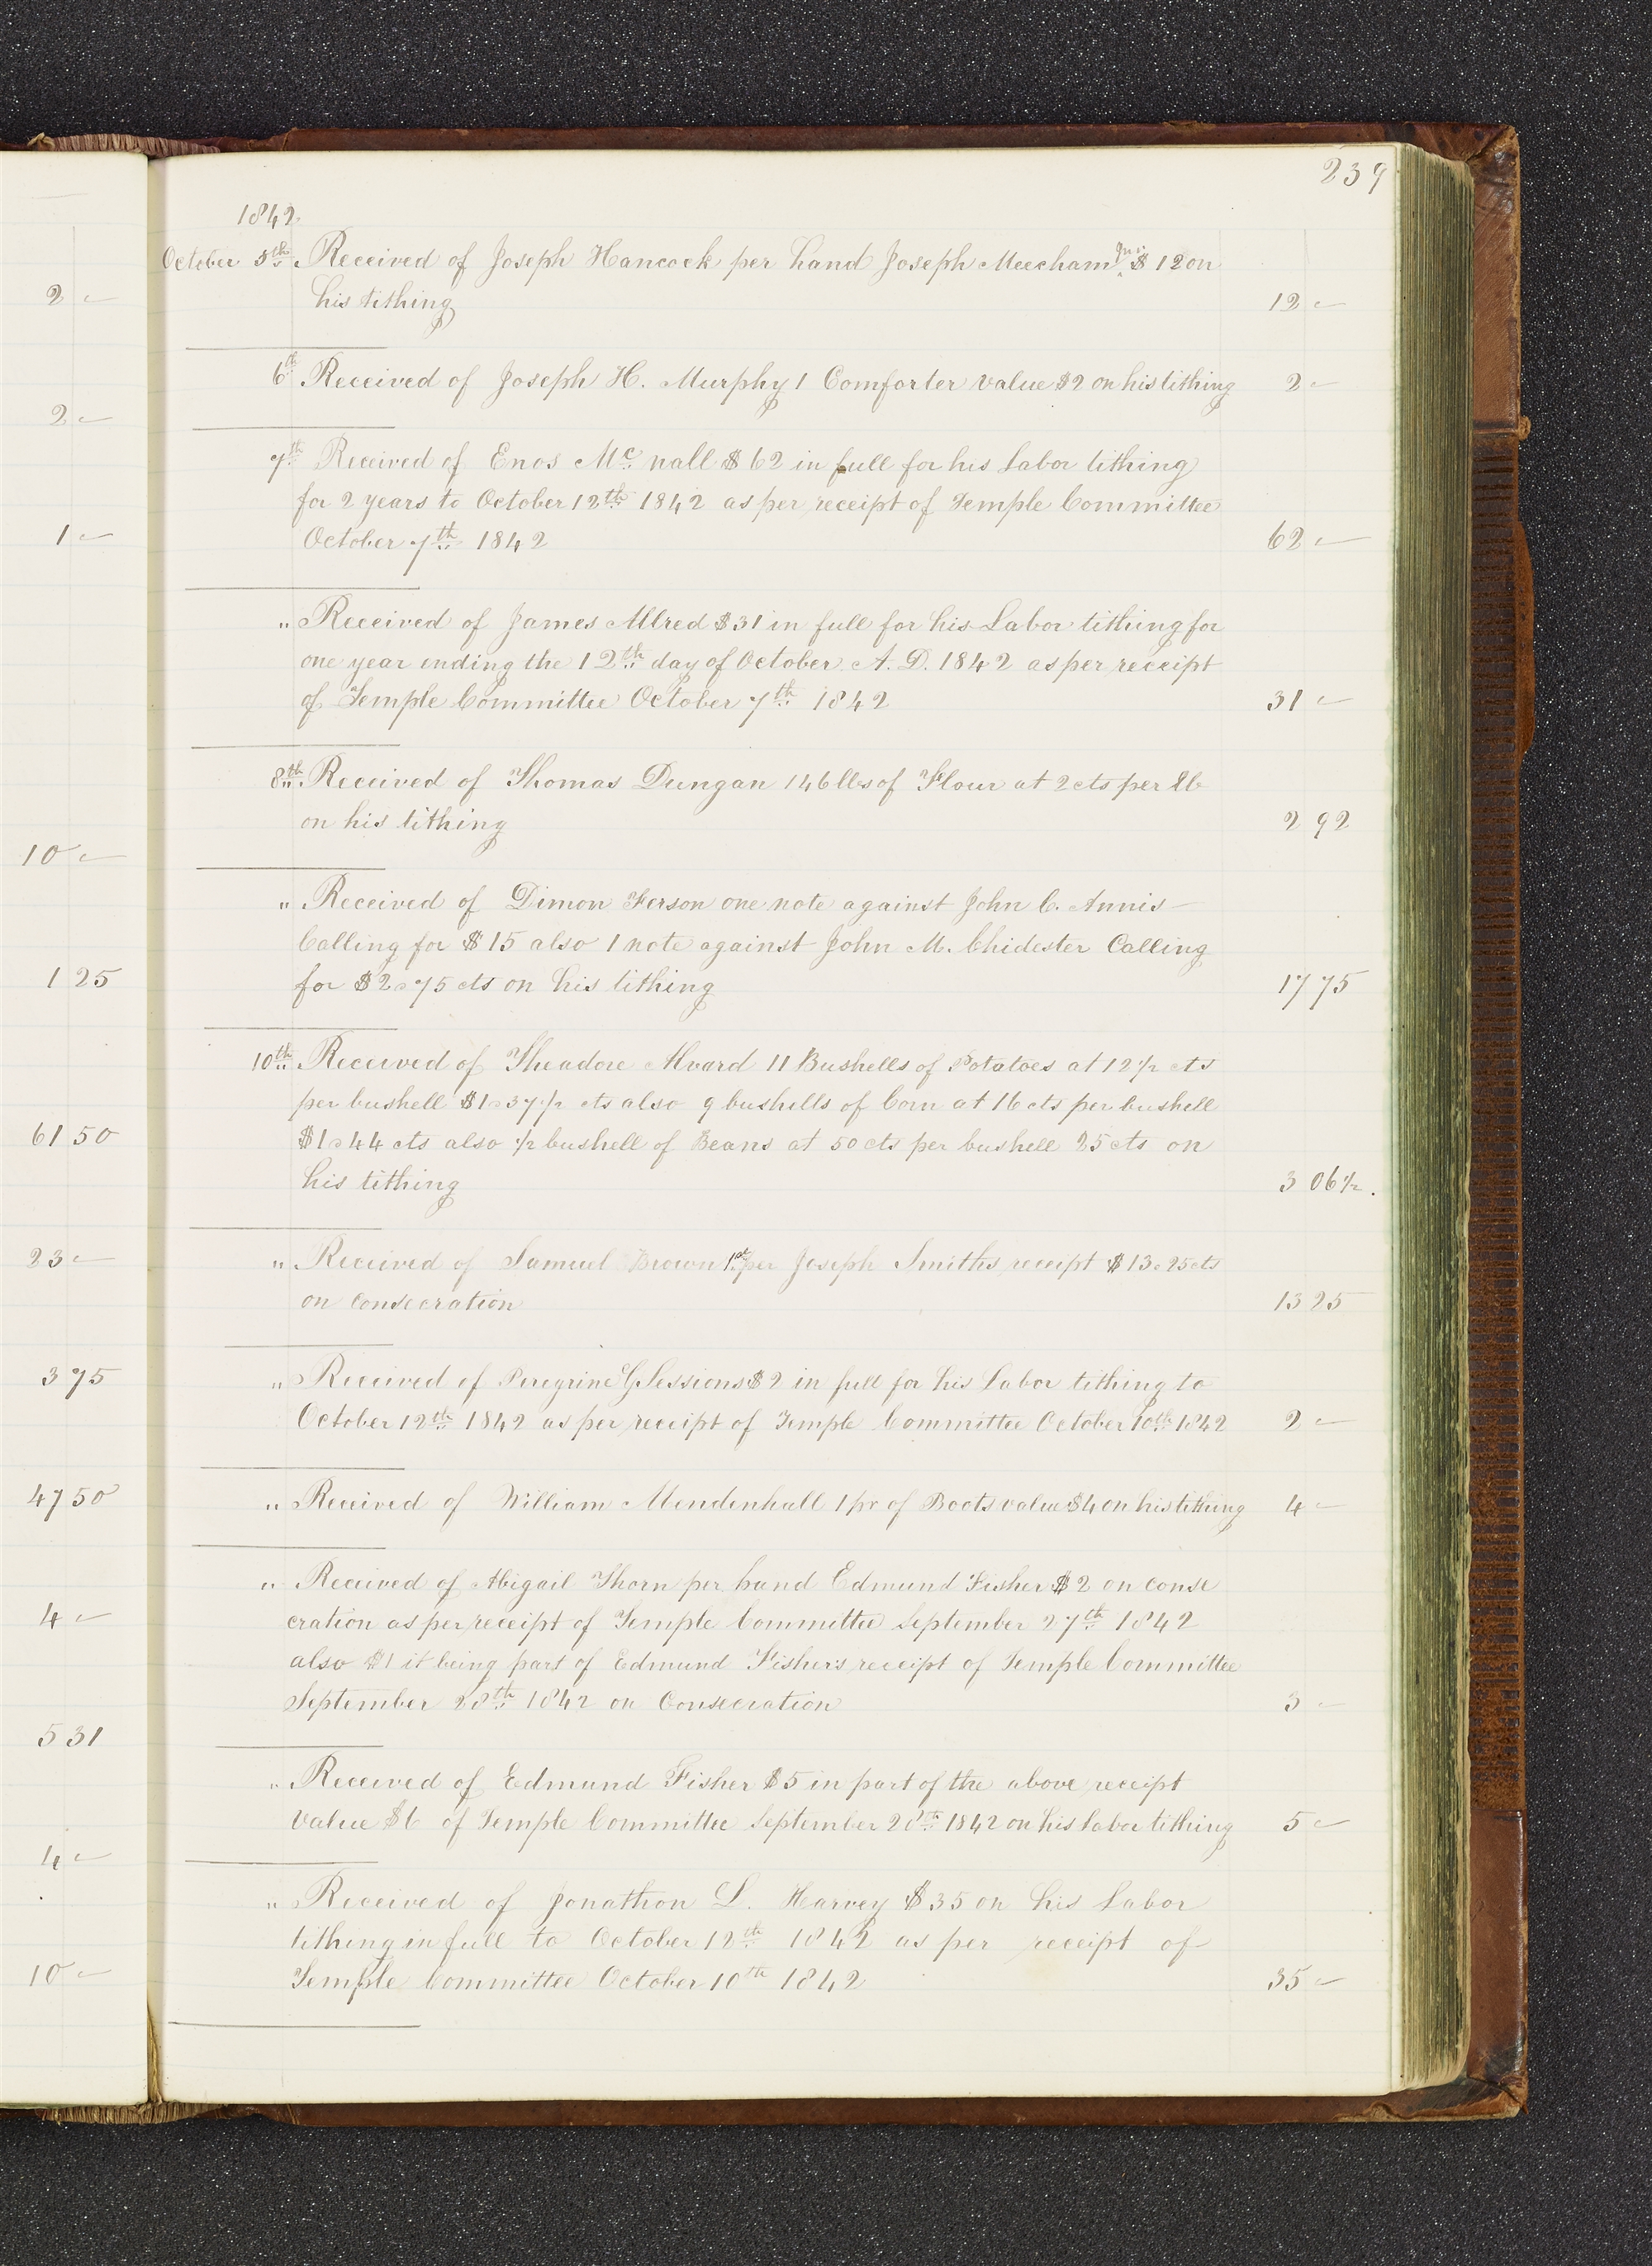 239
1842
October 5th Received of Joseph Hancock per hand Joseph Meecham Jnr $12 on
his tithing 12 –
6th Received of Joseph H. Murphy 1 Comforter value $2 on his tithing 2 –
7th Received of Enos Mc nall $62 in full for his Labor tithing
for 2 years to October 12th 1842 as per receipt of Temple Committee
October 7th 1842 62 –
" Received of James Allred $31 in full for his Labor tithing for
one year ending the 12th day of October A. D. 1842 as per receipt
of Temple Committee October 7th 1842 31 –
8th Received of Thomas Dungan 146 lbs of Flour at 2 cts per lb
on his tithing 2 92
" Received of Dimon Ferson one note against John C. Annis
Calling for $15 also 1 note against John M. Chidester Calling
for $2.75 cts on his tithing 17 75
10th Received of Theadore Alvard 11 Bushells of Potatoes at 12 1/2 cts
per bushell $1.37 1/2 cts also 9 bushells of Corn at 16 cts per bushell
$1.44 cts also 1/2 bushell of Beans at 50 cts per bushell 25 cts on
his tithing 3 06 1/2.
" Received of Samuel Brown 1st per Joseph Smiths receipt $13.25 cts
on consecration 13 25
" Received of Peregrine G Sessions $2 in full for his Labor tithing to
October 12th 1842 as per receipt of Temple Committee October 10th 1842 2 –
" Received of William Mendenhall 1 pr of Boots value $4 on his tithing 4 –
" Received of Abigail Thorn per hand Edmund Fisher $2 on conse
cration as per receipt of Temple Committee September 27th 1842
also $1 it being part of Edmund Fisher's receipt of Temple Committee
September 28th 1842 on Consecration 3 –
" Received of Edmund Fisher $5 in part of the above receipt
Value $6 of Temple Committee September 28th 1842 on his Labor tithing 5 –
" Received of Jonathon L. Harvey $35 on his Labor
tithing in full to October 12th 1842 as per receipt of
Temple Committee October 10th 1842 35 –
2 –
2 –
1 –
10 –
1 25
61 50
23 –
3 75
47 50
4 –
5 31
4 –
10 –